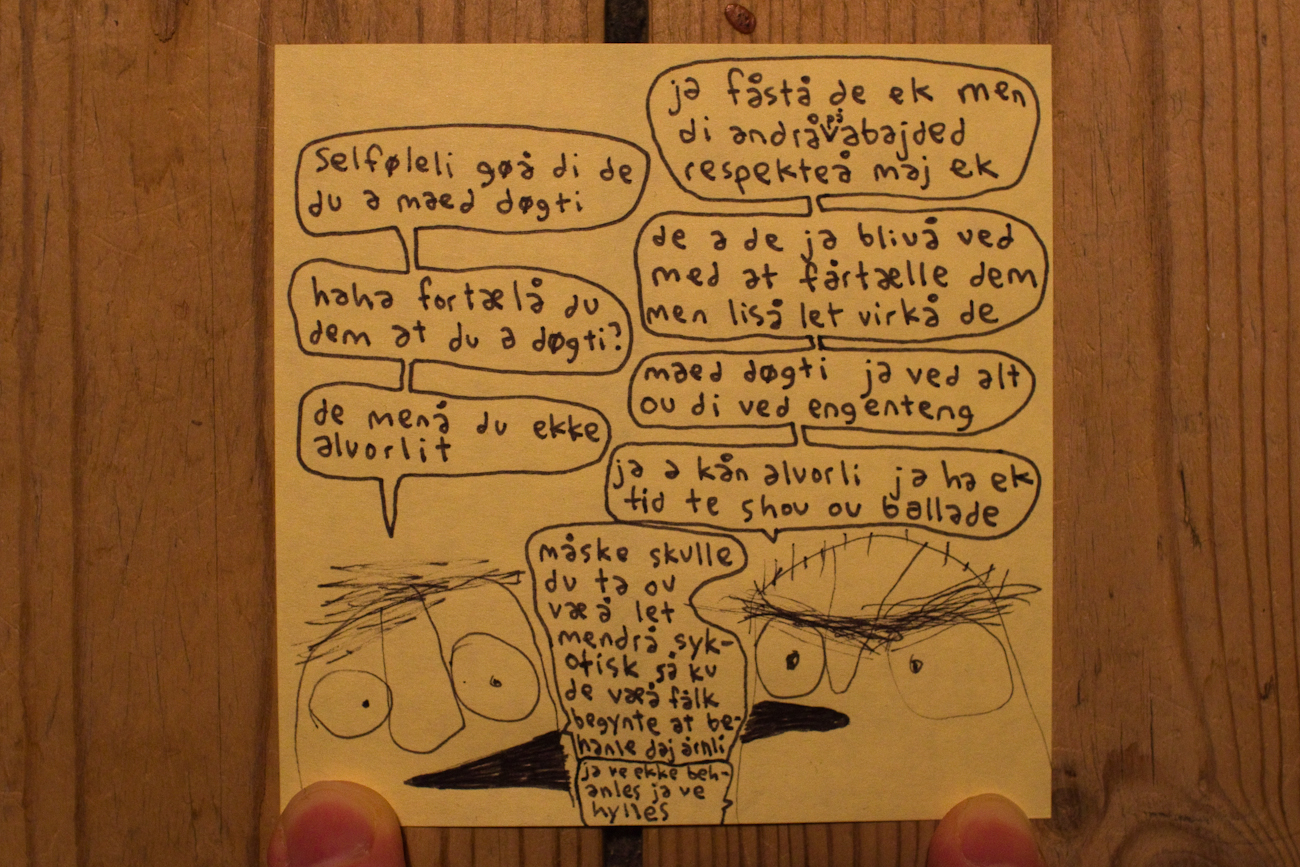 ja fåstå de ek men
di andrå på abajded
respekteå maj ek
selføleli gøå di de
du a maed døgti
de a de ja blivå ved
med at fårtælle dem
men liså let virkå de
haha fortælå du
dem at du a døgti?
maed døgti ja ved alt
ou di ved engenteng
de menå du ekke
alvorlit
ja a kån alvorli ja ha ek
tid te shou ou ballade
måske skulle
du ta ou
væå let
mendrå syk-
otisk så ku
de væå fålk
begynte at be-
hanle daj årnli
ja ve ekke beh-
anles ja ve
hylles